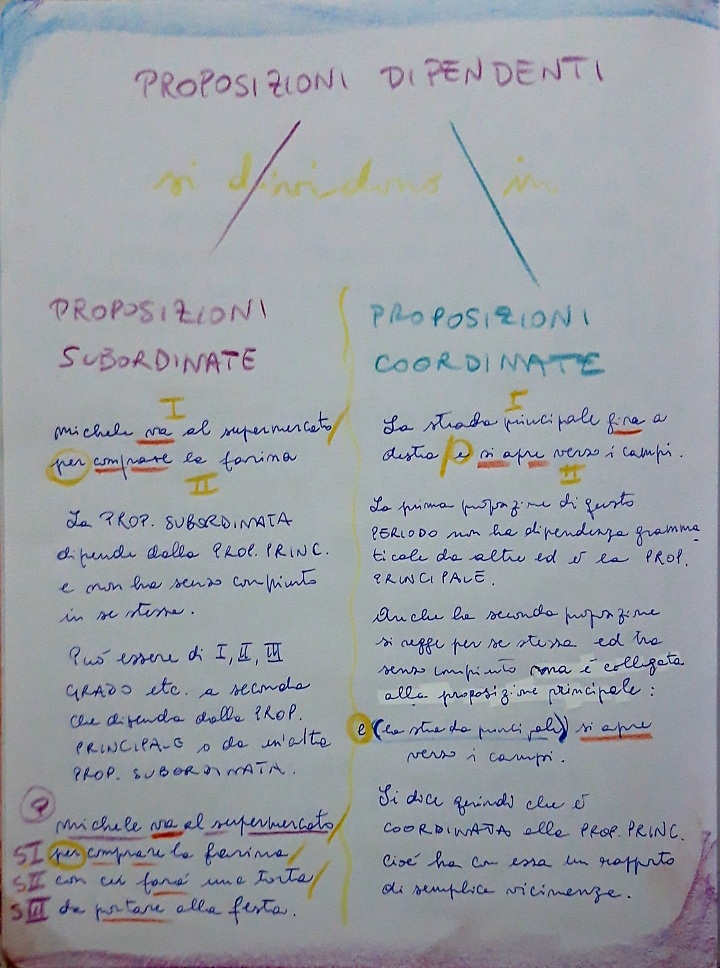 PROPOSIZIONI DIPENDENTI
si dividono in
PROPOSIZIONI
SUBORDINATE
I
michele va al supermercato/
per comprare la farina
II
La PROP. SUBORDINATA
dipende dalla PROP. PRINC.
e non ha senso compiuto
in se stessa.
Può essere di I, II, III
GRADO etc. a seconda
che dipenda dalla PROP.
PRINCIPALE o da un'altra
PROP. SUBORDINATA.
P
michele va al supermercato/
SI per comprare la farina/
SII con cui farà una torta/
SIII da portare alla festa.
PROPOSIZIONI
COORDINATE
I
La strada principale gira a
destra/e si apre verso i campi.
II
La prima proposizione di questo
PERIODO non ha dipendenza gramma
ticale da altre ed è la PROP.
PRINCIPALE.
Anche la seconda proposizione
si regge per se stessa ed ha
senso compiuto ma è collegata
alla proposizione principale:
e (la strada principale) si apre
verso i campi.
Si dice quindi che è
COORDINATA alla PROP. PRINC.
cioé ha con essa un rapporto
di semplice vicinanza.